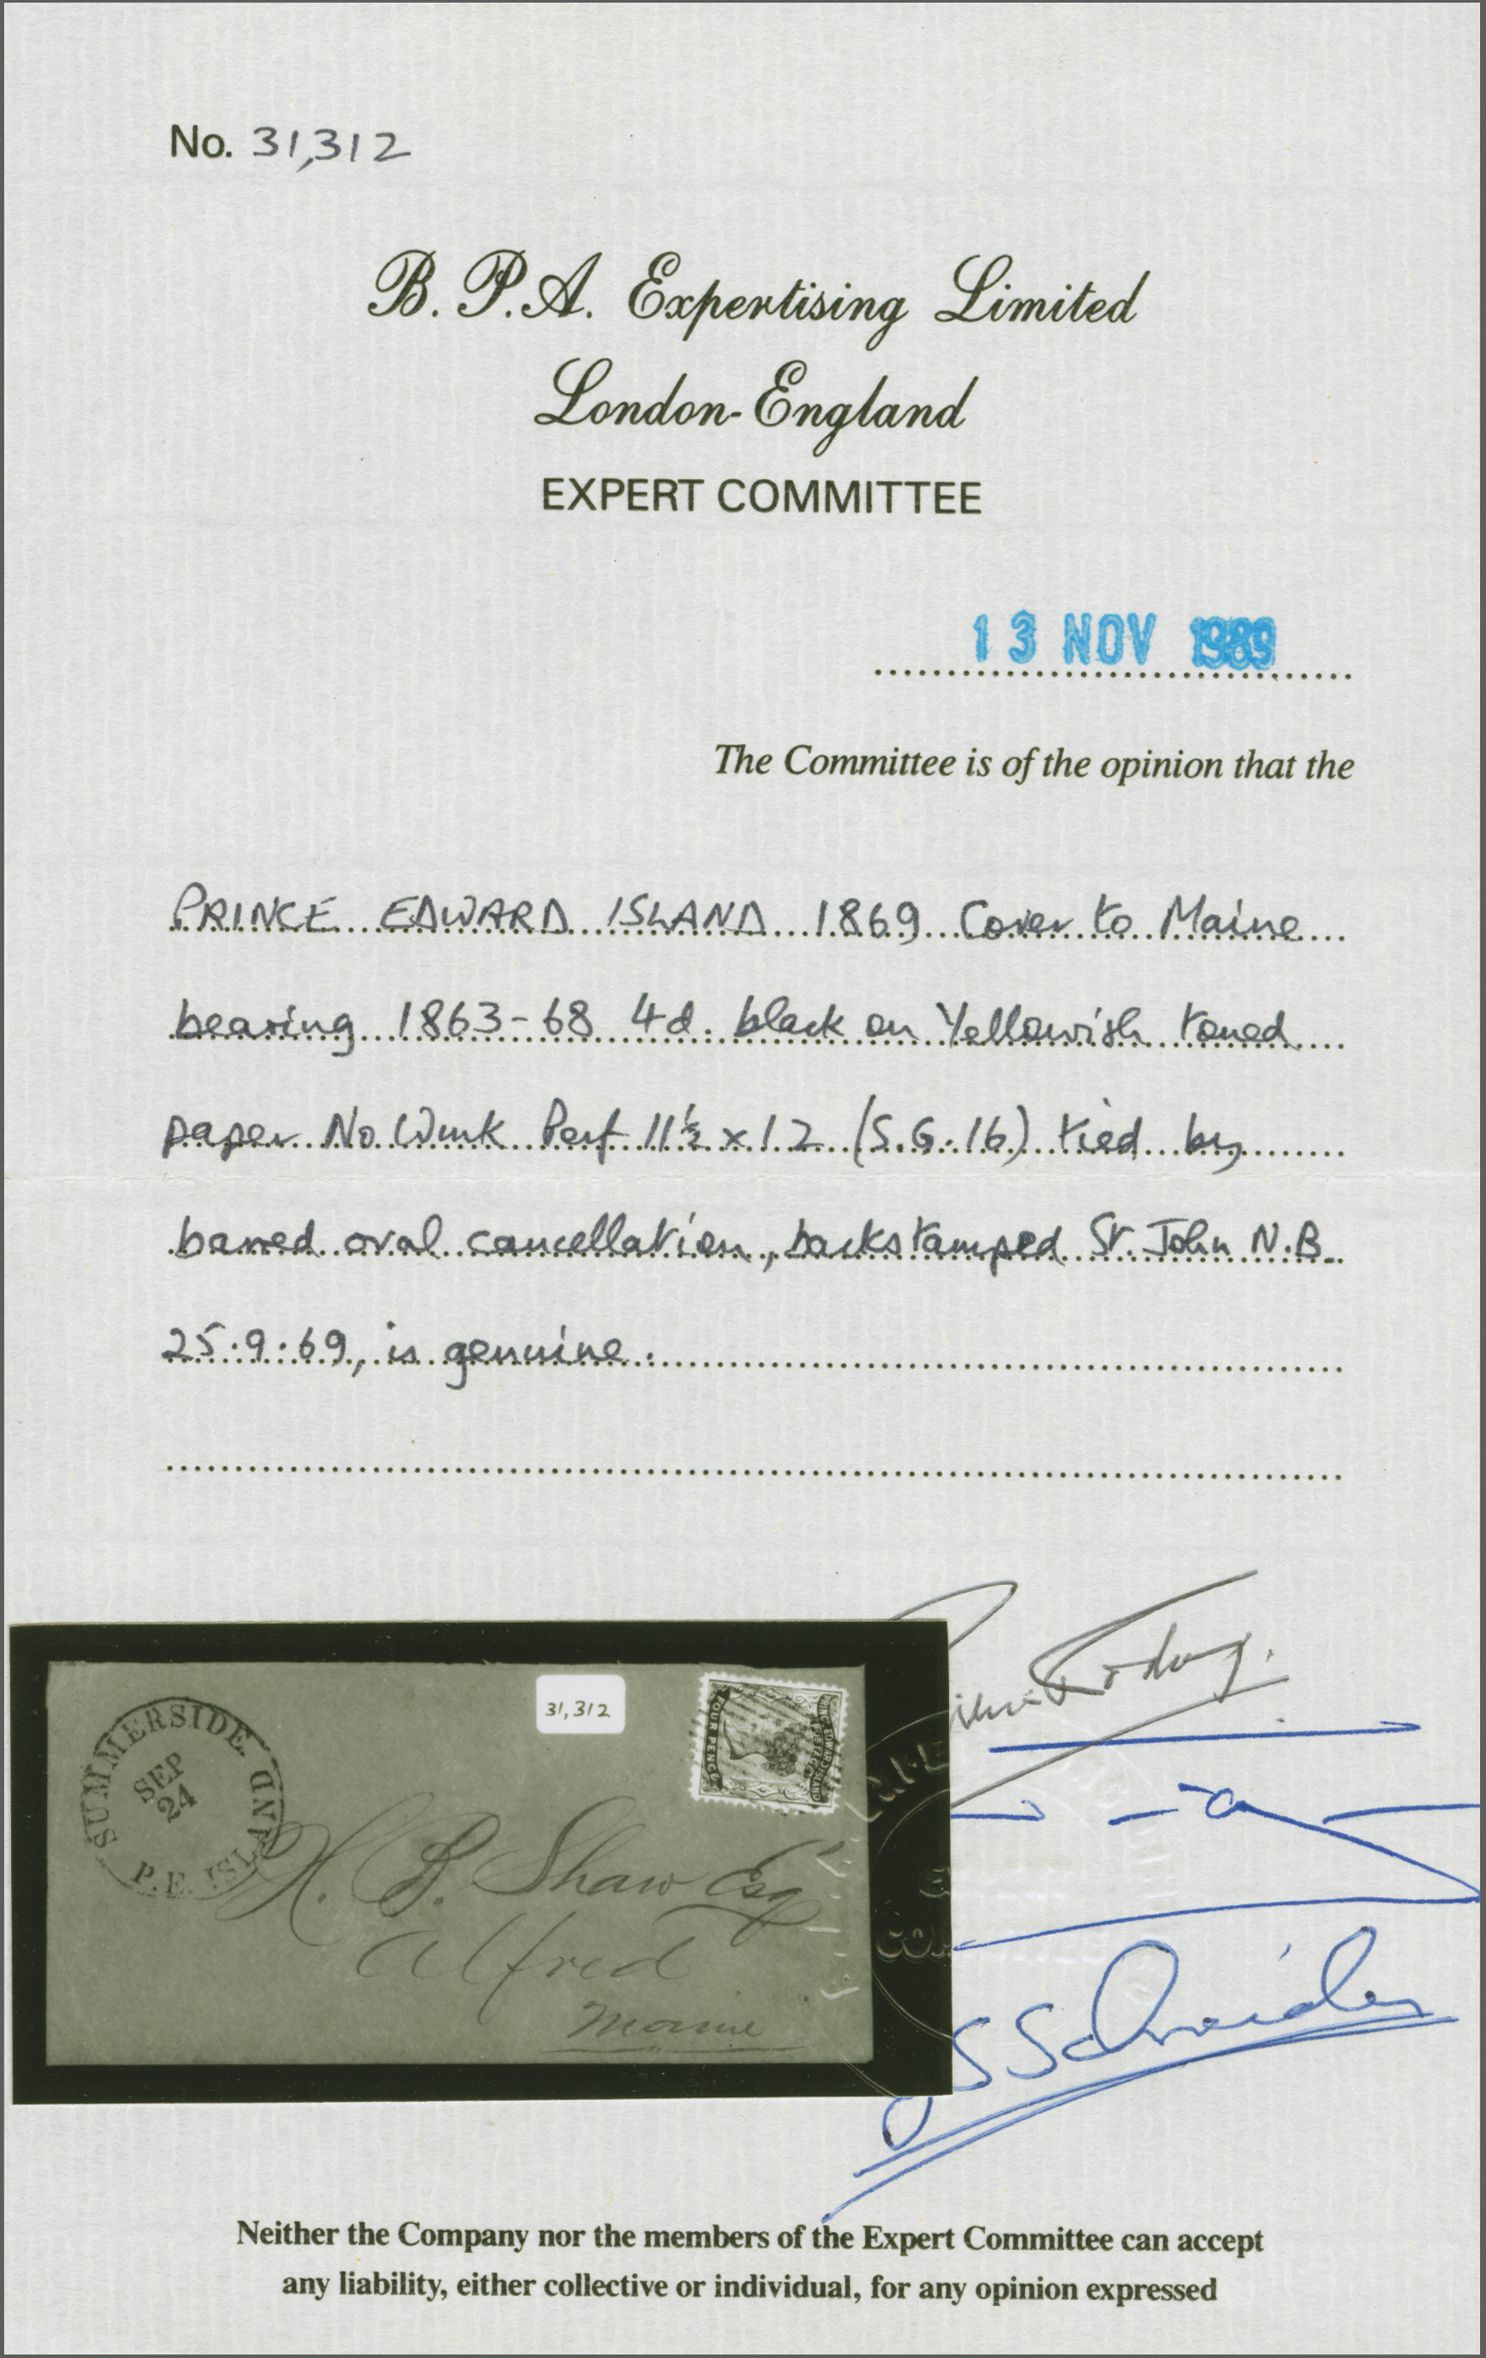 No. 31,312
B. P. A. Expertising Limited
London-England
EXPERT COMMITTEE
13 NOV 1989
The Committee is of the opinion that the
PRINCE EDWARD ISLAND 1869 Cover to Maine
bearing 1863-68 4d. black on Yellowish toned
paper No Wmk Perf 11½ x 12 (S.G.16) tied by
barred oval cancellation, backstamped St. John N.B.
25.9.69, is genuine.
31,312
SUMMERSIDE.
SEP
24
P.E. ISLAND
FOUR PENCE
H. B. Shaw Esq
Alfred
Maine
Neither the Company nor the members of the Expert Committee can accept
any liability, either collective or individual, for any opinion expressed